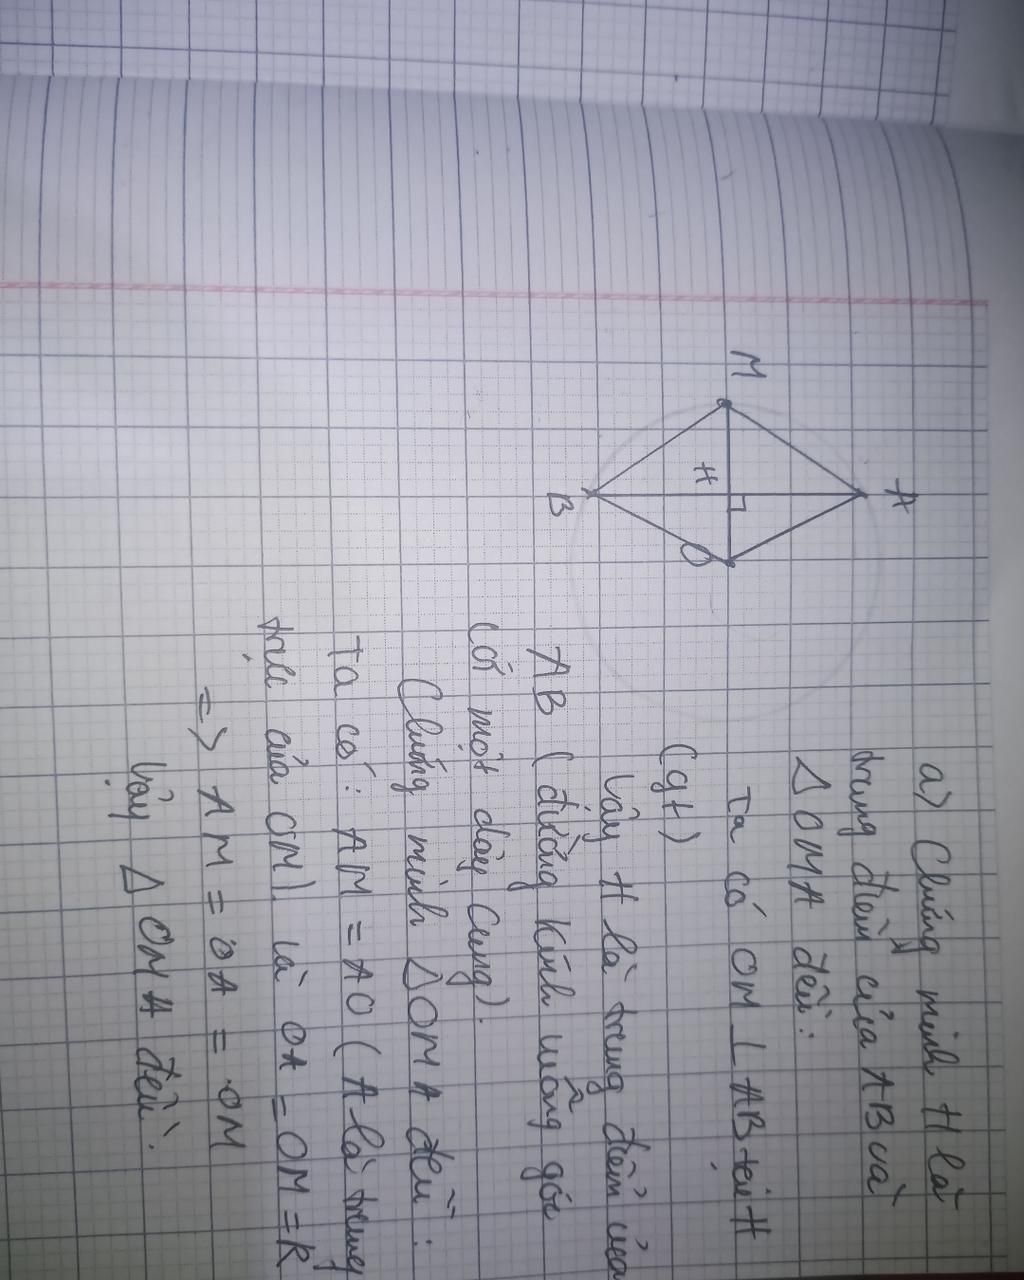 M
A
H
B
O
a) Chứng minh H là
trung điểm của AB và
Δ OMA đều:
Ta có OM ⊥ AB tại H
(gt)
Vậy H là trung điểm của
AB (đường kính vuông góc
với một dây cung).
Chứng minh Δ OMA đều:
Ta có: AM = AO (A là trung
trực của OM) là OA = OM = R
=> AM = OA = OM
Vậy Δ OMA đều.